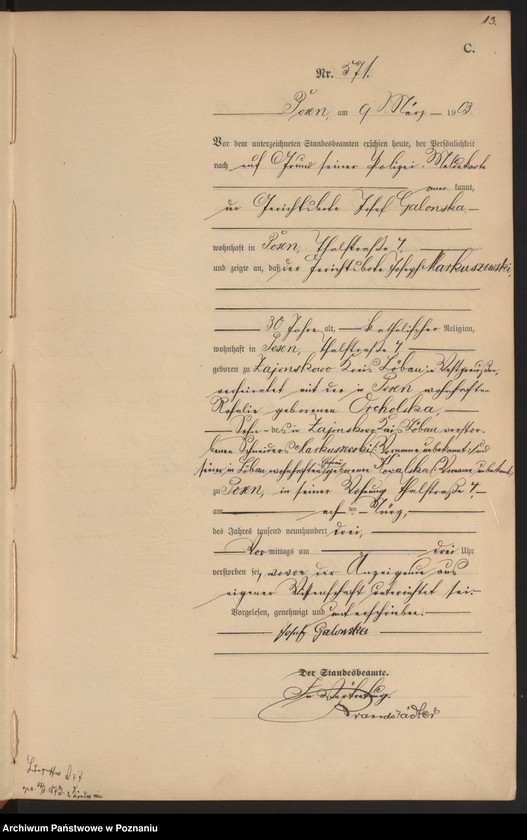 13.
C.
Nr. 571.
Posen, am 9 März 1903.
Vor dem unterzeichneten Standesbeamten erschien heute, der Persönlichkeit
nach auf Grund seiner Polizei-Meldekarte
anerkannt,
der Gerichtsbote Josef Galonska,
wohnhaft in Posen, Thalstraße 7.
und zeigte an, daß der Gerichtsbote Joseph Markuszewski,
30 Jahre alt, katholischer Religion,
wohnhaft in Posen, Thalstraße 7,
geboren zu Zajonskowo Kreis Löbau in Westpreußen,
verheiratet mit der in Posen wohnhaften
Rosalie geborenen Orcholska,
Sohn des in Zajonskowo Kreis Löbau verstor-
benen Schneiders Markuszewski (Vorname unbekannt) und
seiner in Löbau wohnhaften geborene Kowalska (Vorname unbekannt)
zu Posen, in seiner Wohnung Thalstraße 7,
am acht ten März,
des Jahres tausend neunhundert drei,
Vor mittags um drei Uhr
verstorben sei, wovon der Anzeigende aus
eigener Wissenschaft unterrichtet sei.
Vorgelesen, genehmigt und unterschrieben.
Josef Galonska
Der Standesbeamte.
In Vertretung.
Brandstädter
Archiwum Państwowe w Poznaniu